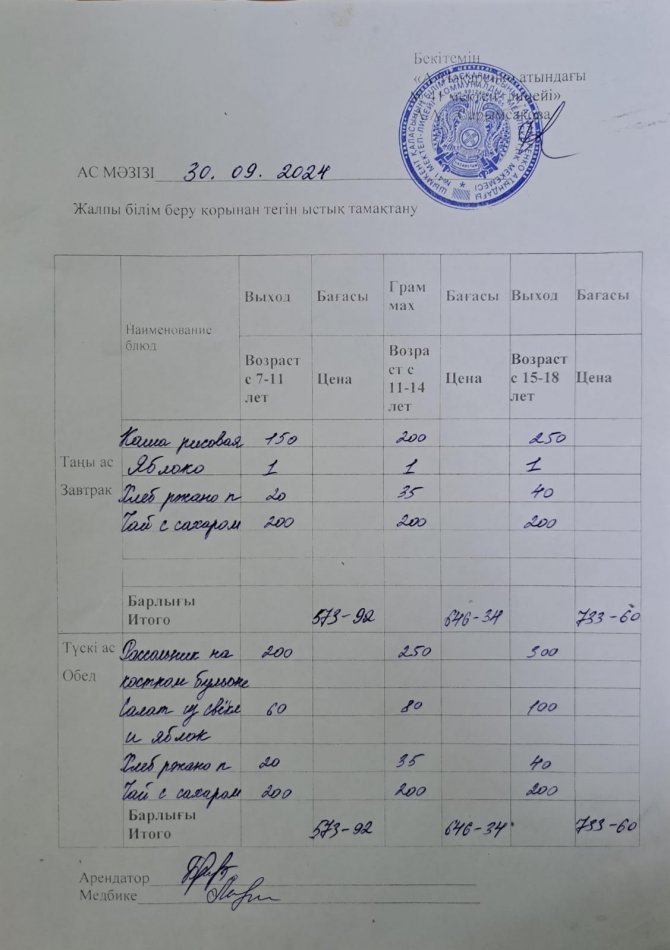 Бекітемін
атындағы
мектеп-лицейі»
АС МӘЗІЗІ 30. 09. 2024
Жалпы білім беру қорынан тегін ыстық тамақтану
Наименование блюд
Выход Бағасы Грам мах Бағасы Выход Бағасы
Возраст с 7-11 лет Цена Возра ст с 11-14 лет Цена Возраст с 15-18 лет Цена
Таңы ас
Завтрак
Каша рисовая 150 200 250
Яблоко 1 1 1
Хлеб ржано п 20 35 40
Чай с сахаром 200 200 200
Барлығы
Итого 573-92 646-34 733-60
Түскі ас
Обед
Рассольник на 200 250 300
костном бульоне
Салат из свёкл 60 80 100
и яблок
Хлеб ржано п 20 35 40
Чай с сахаром 200 200 200
Барлығы
Итого 573-92 646-34 733-60
Арендатор
Медбике